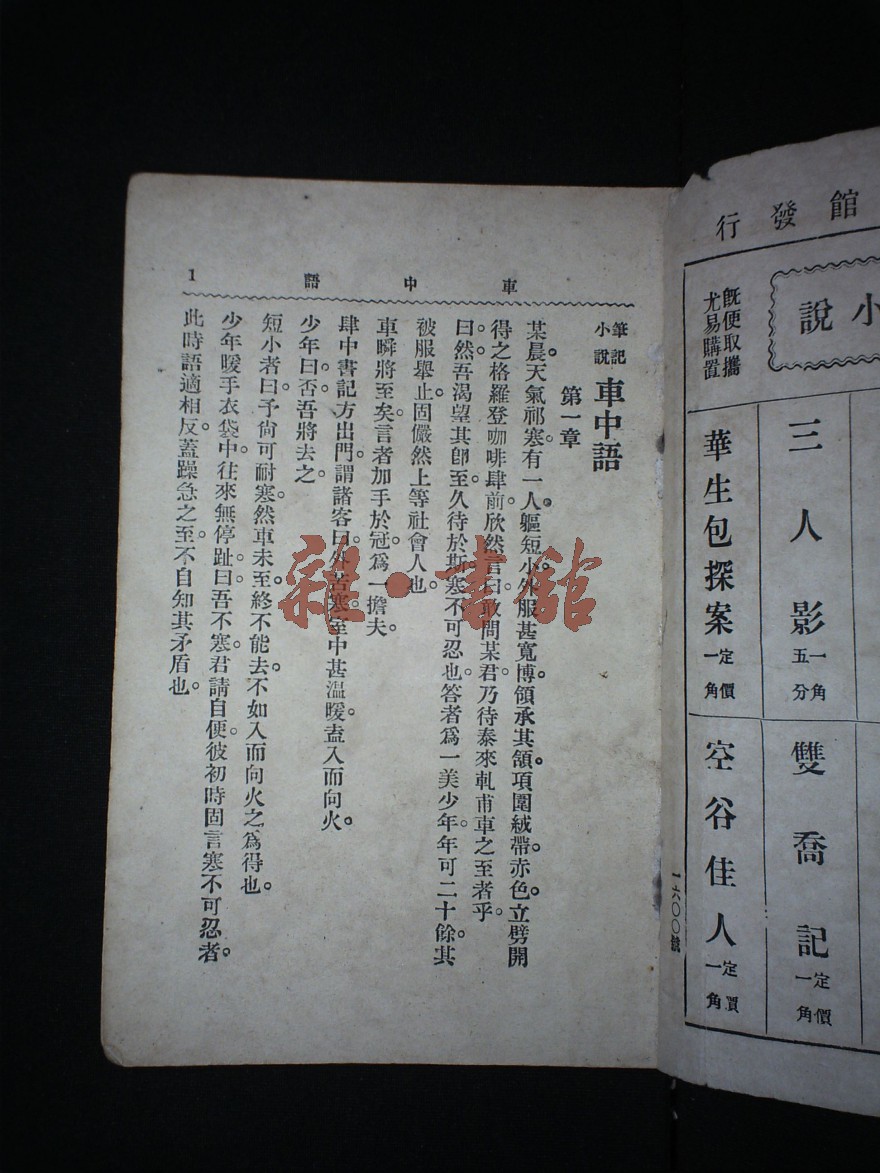 館發行
小說
既便取攜
尤易購置
三人影
一角
五分
雙喬記
定價
一角
華生包探案
定價
一角
空谷佳人
定價
一角
一六〇〇號
車中語
1
筆記
小說
車中語
第一章
某晨。天氣祁寒。有一人軀短小。外服甚寬博。領承其頷。項圍絨帶。赤色。立劈開
得之格羅登咖啡肆前。欣然言曰。敢問某君乃待泰來軋甫車之至者乎。
曰。然。吾渴望其卽至。久待於斯。寒不可忍也。答者爲一美少年。年可二十餘。其
被服舉止。固儼然上等社會人也。
車瞬將至矣。言者加手於冠。爲一擔夫。
肆中書記方出門。謂諸客曰。外苦寒。室中甚溫暖。盍入而向火。
少年曰。否。吾將去之。
短小者曰。予尙可耐寒。然車未至。終不能去。不如入而向火之爲得也。
少年暖手衣袋中。往來無停趾。曰。吾不寒。君請自便。彼初時固言寒不可忍者。
此時語適相反。蓋躁急之至。不自知其矛盾也。
雜·書館